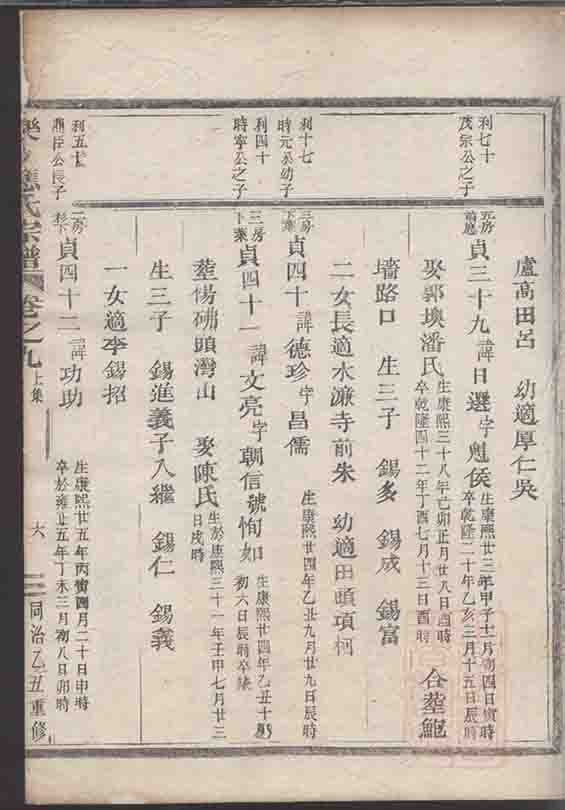 盧高田呂　幼適厚仁吳
利七十
茂宗公之子
貞三十九　諱日選字魁侯
生康熙廿三年甲子十二月初四日寅時
卒乾隆二十年乙亥三月十五日辰時
娶郭墺潘氏
生康熙三十八年己卯正月廿八日酉時
卒乾隆四十二年丁酉七月十三日酉時
合塟鮑
墻路口　生三子　錫多　錫成　錫富
二女長適水濂寺前朱　幼適田頭項柯
利十七
時元公幼子
三房
下葉
貞四十　諱德珍字昌儒
生康熙廿四年乙丑九月廿九日辰時
利四十
時寧公之子
三房
下葉
貞四十一　諱文亮字朝信號恂如
生康熙廿四年乙丑十
初六日辰時卒缺
塟楊砩頭灣山　娶陳氏
生於康熙三十一年壬申七月廿三
日戌時
生三子　錫進義子入繼　錫仁　錫義
一女適李錫招
利五
鼎臣公長子
二房
杉下
貞四十二　諱功助
生康熙廿五年丙寅四月二十日申時
卒於雍正五年丁未三月初八日卯時
樂　應氏宗譜　卷之九　上集　六　同治乙丑重修